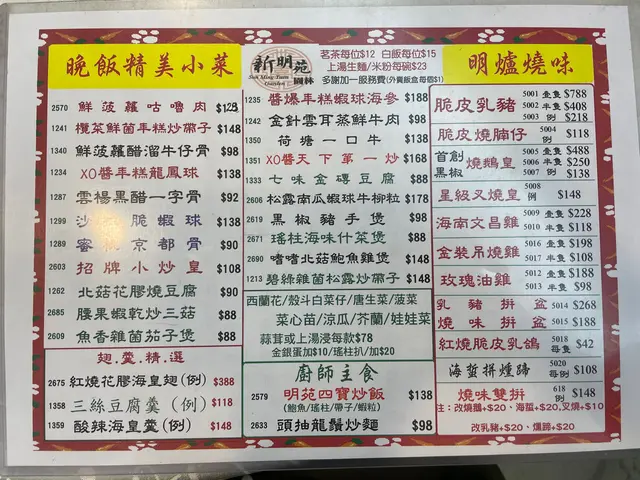 晚飯精美小菜
2570 鮮菠蘿咕嚕肉 $128
1241 欖菜鮮菌年糕炒帶子 $148
1340 鮮菠蘿醋溜牛仔骨 $98
1234 XO醬年糕龍鳳球 $138
1287 雲楊黑醋一字骨 $92
1299 脆蝦球 $138
1289 京都骨 $98
2603 招牌小炒皇 $108
1262 北菇花膠燒豆腐 $90
2685 腰果蝦乾炒三菇 $88
2609 魚香雜菌茄子煲 $88
翅.羹.精.選
2675 紅燒花膠海皇翅(例) $388
1358 三絲豆腐羹 (例) $118
1359 酸辣海皇羹(例) $148
新明苑
Sun Ming Yuen
Garden
園林
茗茶每位$12 白飯每位$15
上湯生麵/米粉每碗$23
多謝加一服務費(外賣飯盒每個$1)
1235 醬爆年糕蝦球海參 $188
1242 金針雲耳蒸鮮牛肉 $98
1350 荷塘一口牛 $138
1351 XO醬天下第一炒 $168
1333 七味金磚豆腐 $88
2606 松露南瓜蝦球牛柳粒 $178
2619 黑椒豬手煲 $98
2671 瑤柱海味什菜煲 $88
2690 嗜嗜北菇鮑魚雞煲 $148
1213 碧綠雜菌松露炒帶子 $148
西蘭花/殼斗白菜仔/唐生菜/菠菜
菜心苗/涼瓜/芥蘭/娃娃菜
蒜茸或上湯浸每款$78
金銀蛋加$10/瑤柱扒/加$20
廚師主食
2579 明苑四寶炒飯 $138
(鮑魚/瑤柱/帶子/蝦粒)
2633 頭抽龍鬚炒麵 $98
明爐燒味
脆皮乳豬 5001 壹隻 $788
5002 半隻 $408
5003 例 $218
脆皮燒腩仔 5004 例 $118
首創黑椒燒鵝皇 5005 壹隻 $488
5006 半隻 $250
5007 例 $138
星級叉燒皇 5008 例 $148
海南文昌雞 5009 壹隻 $228
5010 半隻 $118
金裝吊燒雞 5016 壹隻 $198
5017 半隻 $108
玫瑰油雞 5012 壹隻 $188
5013 半隻 $98
乳豬拼盆 5014 $268
燒味拼盆 5015 $188
紅燒脆皮乳鴿 5018 每隻 $42
海蜇拼燻蹄 5020 每例 $108
燒味雙拼 618 例 $148
注:改燒鵝+$20、海蜇+$20,叉燒+$10
改乳豬+$20、燻蹄+$20